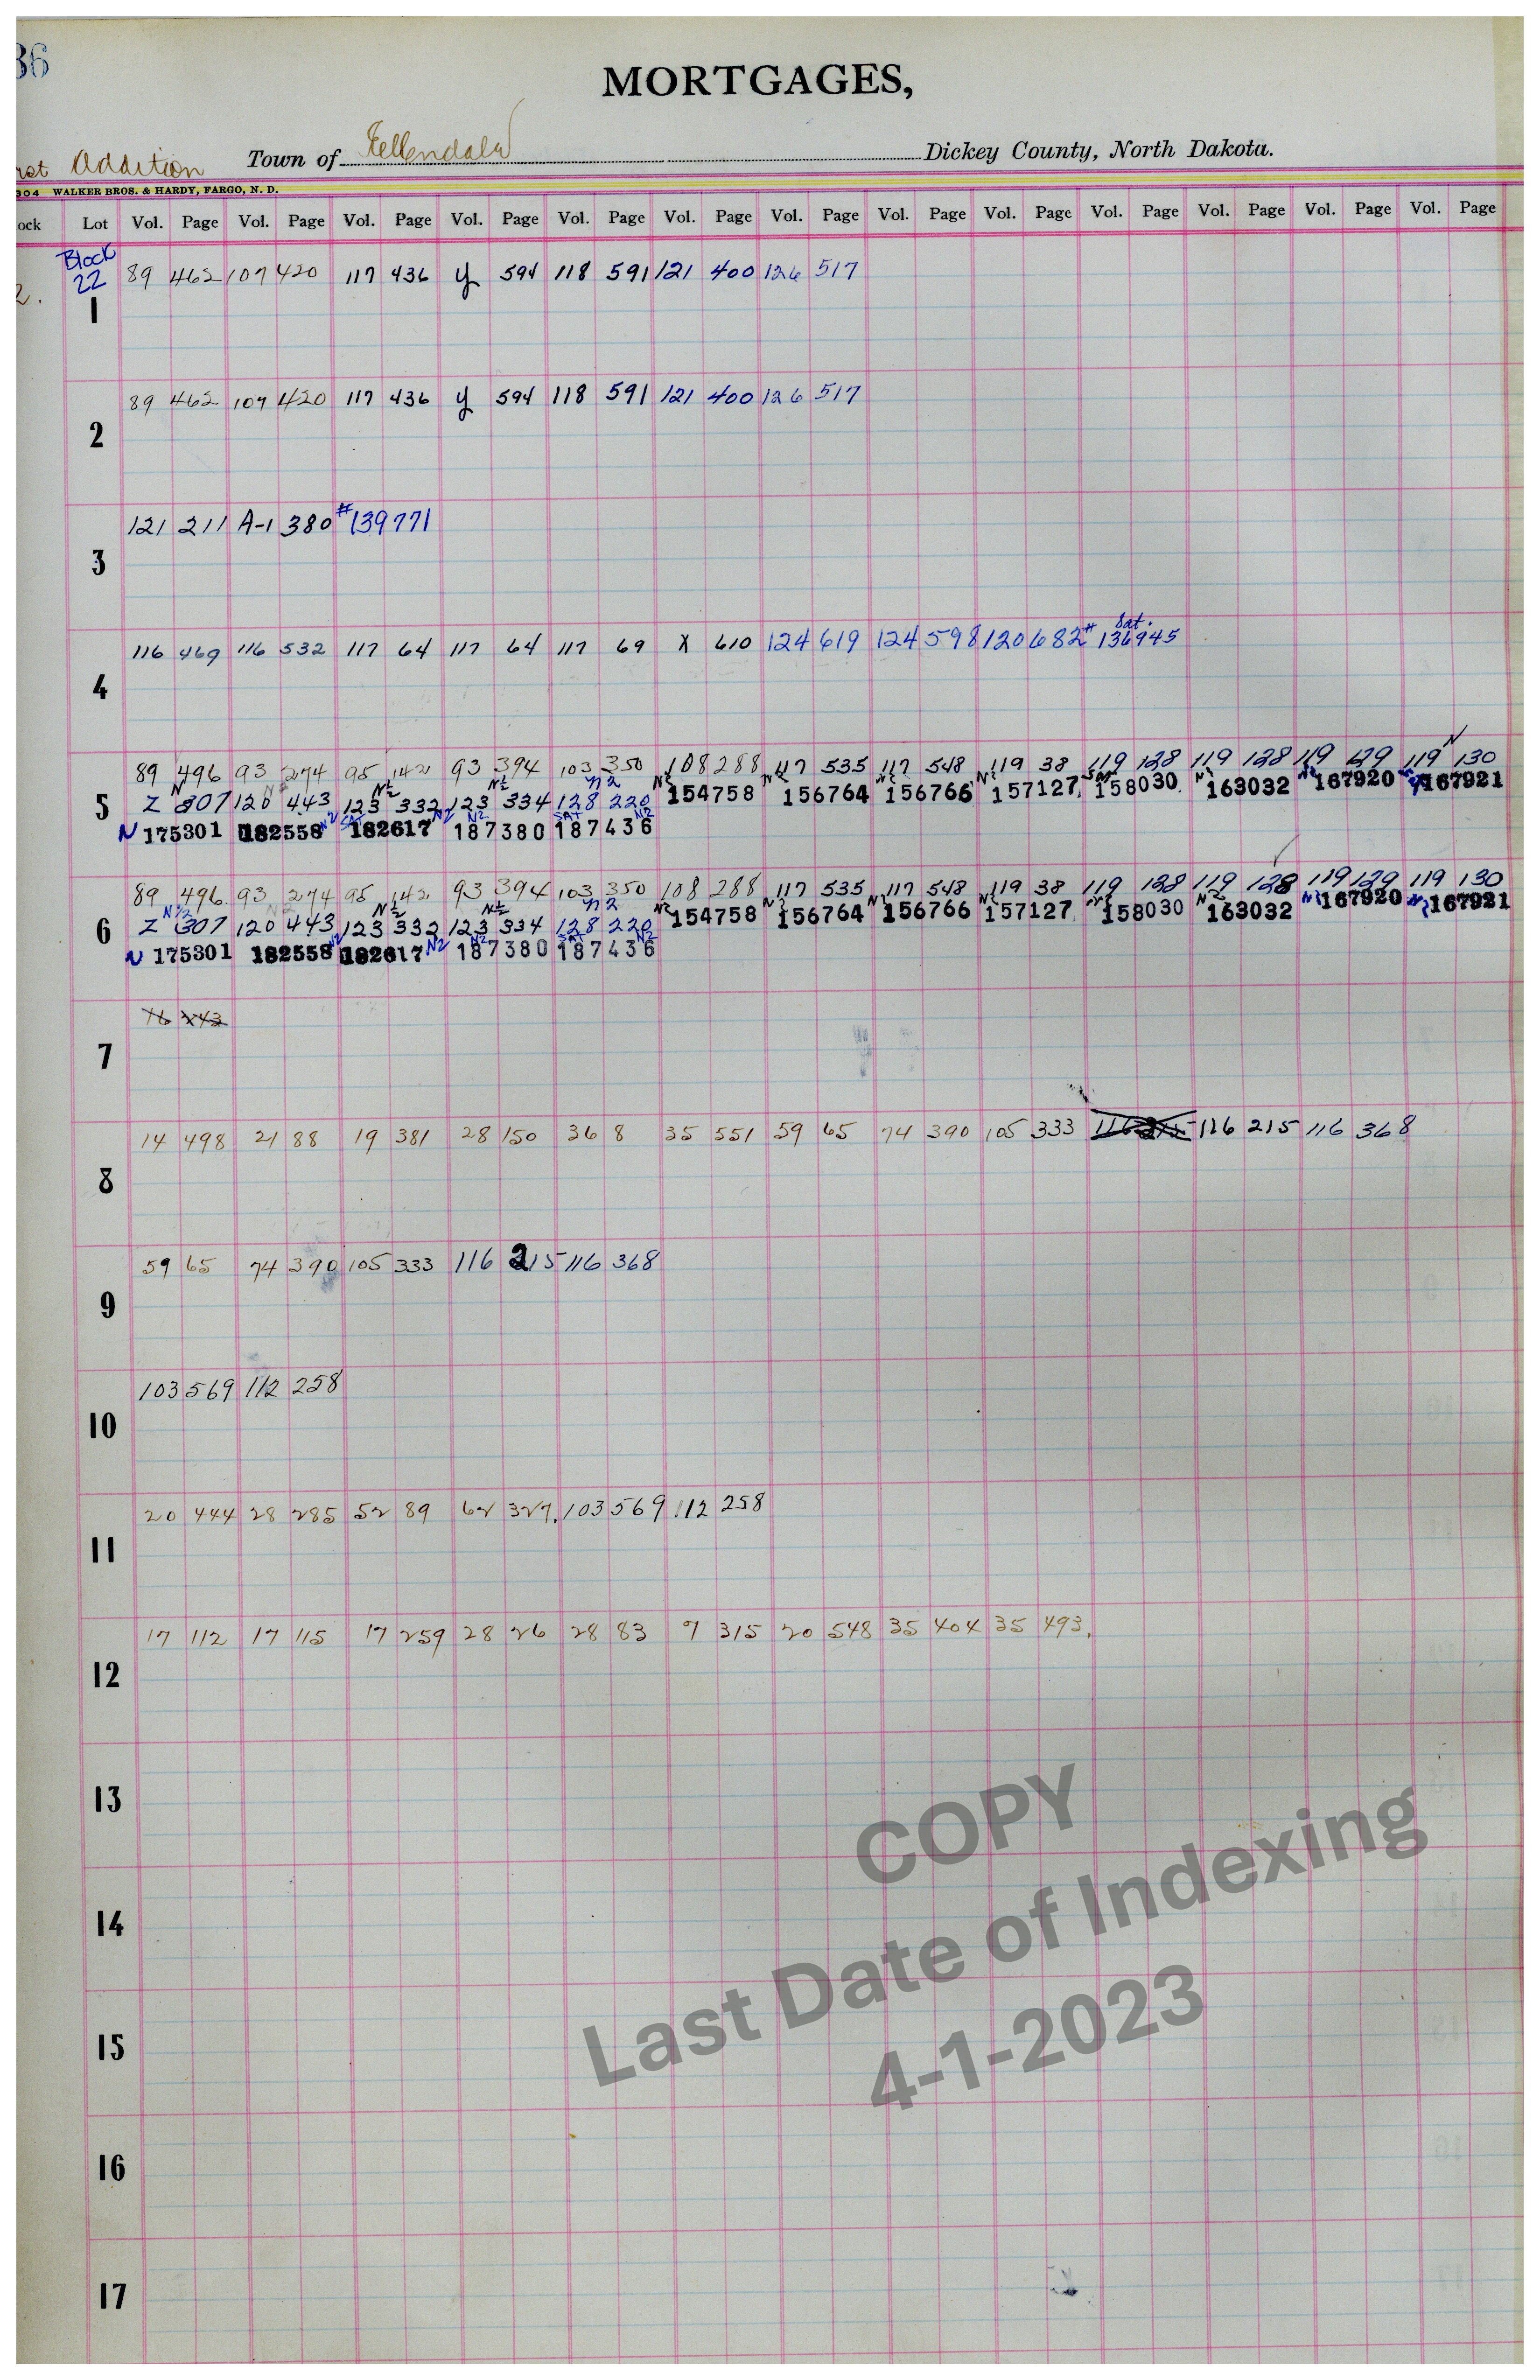 36
MORTGAGES,
Addition Town of Ellendale Dickey County, North Dakota.
304 WALKER BROS. & HARDY, FARGO, N. D.
ock Lot Vol. Page Vol. Page Vol. Page Vol. Page Vol. Page Vol. Page Vol. Page Vol. Page Vol. Page Vol. Page Vol. Page Vol. Page Vol. Page
Block
22
2.
89 462 107 420 117 436 y 594 118 591 121 400 126 517
1
89 462 107 420 117 436 y 594 118 591 121 400 126 517
2
121 211 A-1 380 #139771
3
Sat.
116 469 116 532 117 64 117 64 117 69 X 610 124 619 124 598 120 682 #136945
4
89 496 93 274 95 142 93 394 103 350 108 288 117 535 117 548 119 38 119 128 119 128 119 129 119 130
N N2 N½ N½ N2 N2 N2 N2 N2 Sat N2 N2
5 Z 307 120 443 123 332 123 334 128 220 154758 156764 156766 157127 158030 163032 167920 167921
N2 SAT N2 N2 SAT N2
N 175301 182558 182617 187380 187436
89 496 93 274 95 142 93 394 103 350 108 288 117 535 117 548 119 38 119 128 119 128 119 129 119 130
N½ N2 N½ N½ N2 N2 N2 N2 N2 N2 N2 N2
6 Z 307 120 443 123 332 123 334 128 220 154758 156764 156766 157127 158030 163032 167920 167921
N2 N2 N2 Sat N2
N 175301 182558 182617 187380 187436
76 443
7
14 498 21 88 19 381 28 150 36 8 35 551 59 65 74 390 105 333 116 215 116 215 116 368
8
59 65 74 390 105 333 116 215 116 368
9
103 569 112 258
10
20 444 28 285 52 89 62 327. 103 569 112 258
11
17 112 17 115 17 259 28 26 28 83 9 315 20 548 35 404 35 493.
12
13
14
15
16
17
COPY
Last Date of Indexing
4-1-2023